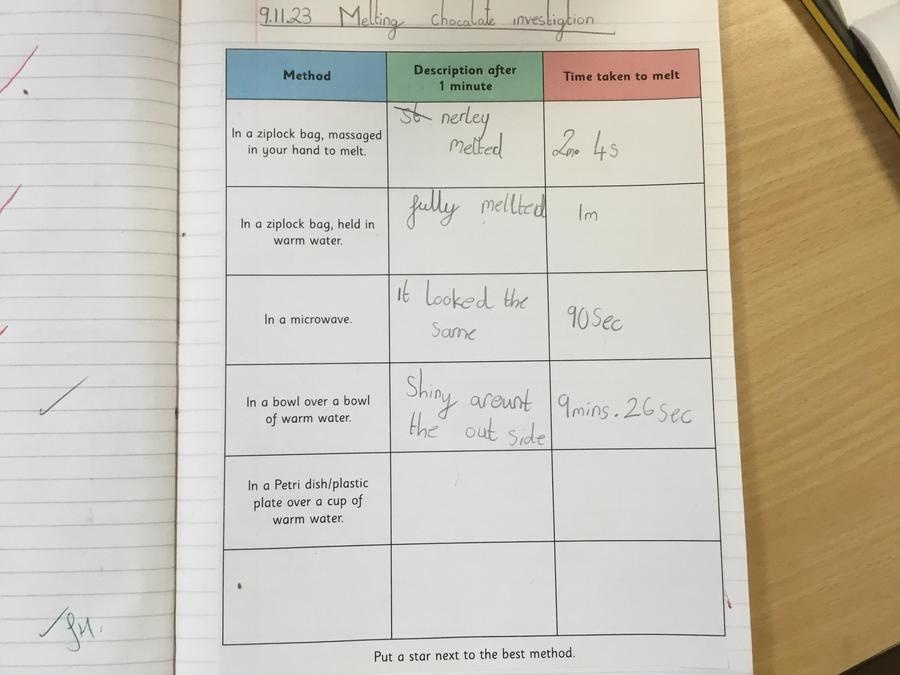 9.11.23 Melting Chocolate investigtion
Method
Description after
1 minute
Time taken to melt
In a ziplock bag, massaged
in your hand to melt.
st nerley
melted
2m 4s
In a ziplock bag, held in
warm water.
fully mellted
1m
In a microwave.
It looked the
same
90sec
In a bowl over a bowl
of warm water.
Shiny arount
the out side
9mins. 26sec
In a Petri dish/plastic
plate over a cup of
warm water.
Put a star next to the best method.